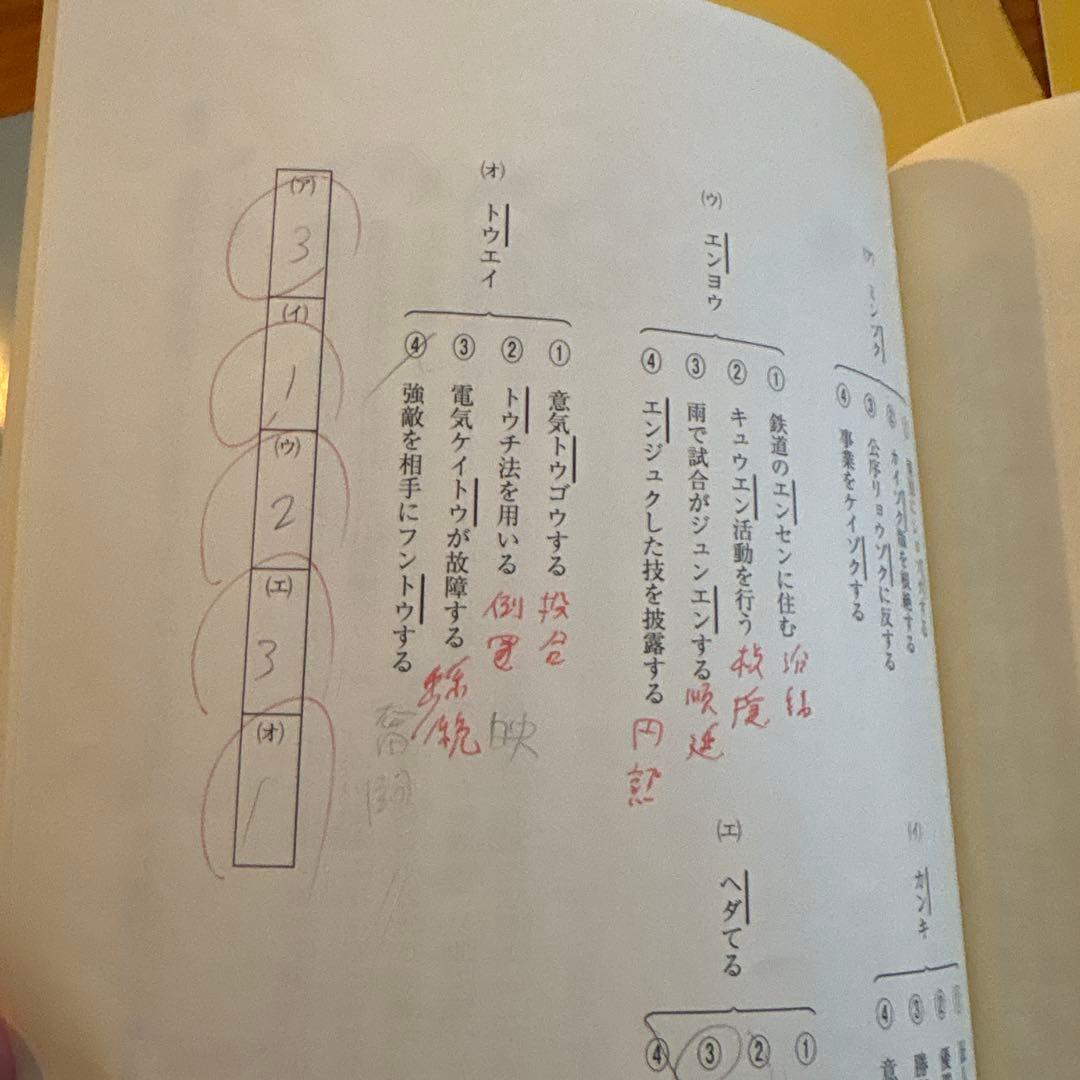 ④ 事業をケイゾクする
③ 公序リョウゾクに反する
(イ) カンキ
④ 意
③ 勝
②
(ウ) エンヨウ
① 鉄道のエンセンに住む
② キュウエン活動を行う
③ 雨で試合がジュンエンする 順延
④ エンジュクした技を披露する 円熟
(エ) ヘダてる
①
②
③
④
(オ) トウエイ
① 意気トウゴウする 投合
② トウチ法を用いる 倒置 映
③ 電気ケイトウが故障する 系統
④ 強敵を相手にフントウする 奮闘
(ア) 3
(イ) 1
(ウ) 2
(エ) 3
(オ) 1